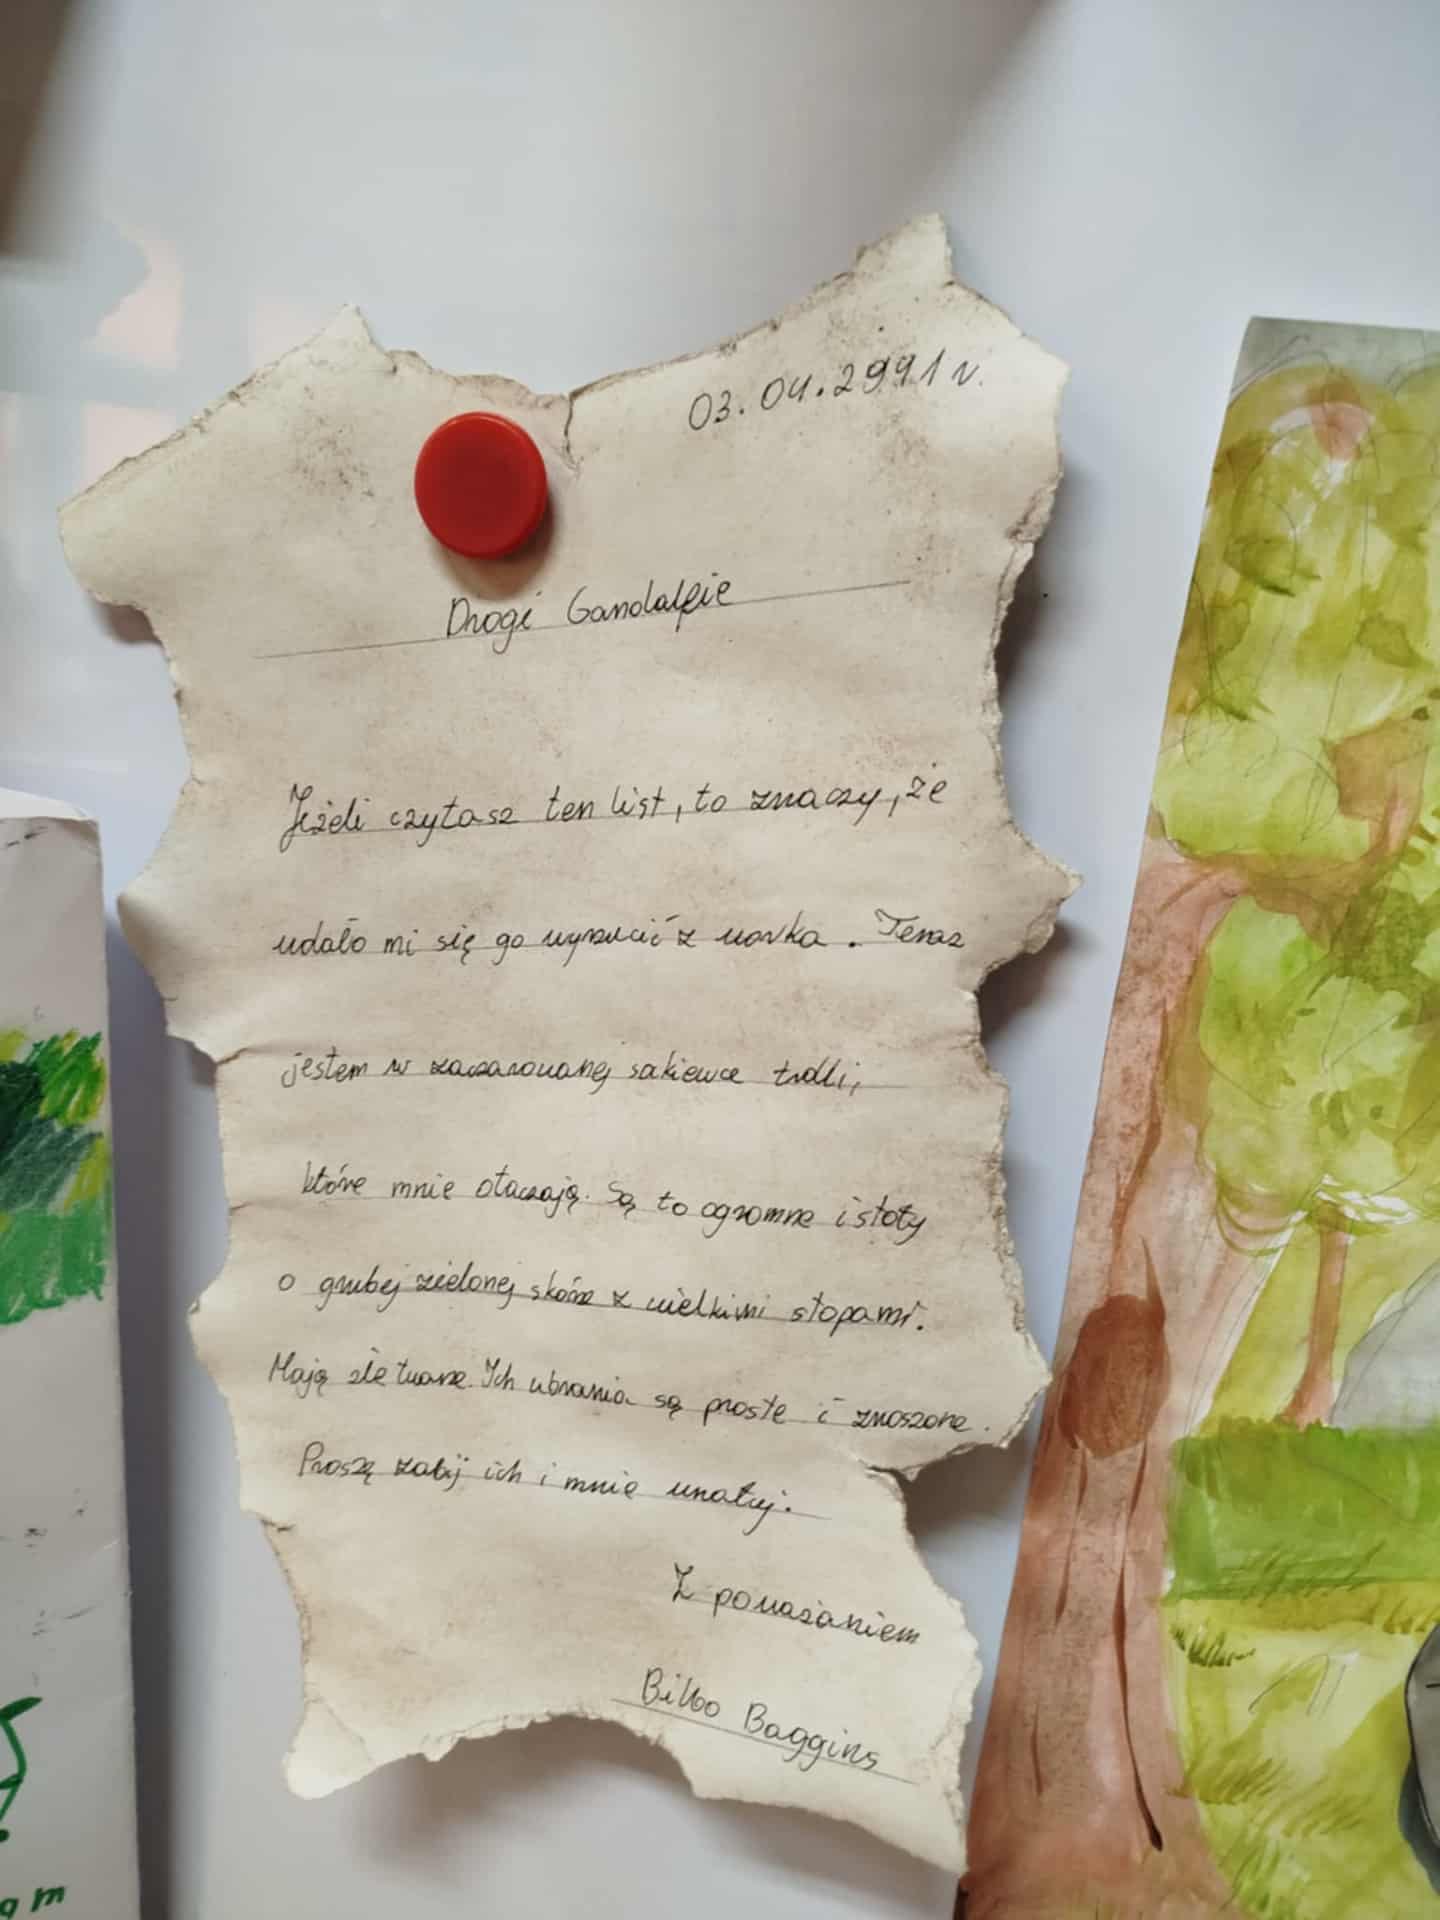 03.04.2991 r.
Drogi Gandalfie
Jeżeli czytasz ten list, to znaczy, że
udało mi się go wyrzucić z worka. Teraz
jestem w zaczarowanej sakiewce trolli,
które mnie otaczają. Są to ogromne istoty
o grubej zielonej skórze z wielkimi stopami.
Mają złe twarze. Ich ubrania są proste i znoszone.
Proszę zabij ich i mnie uratuj.
Z poważaniem
Bilbo Baggins